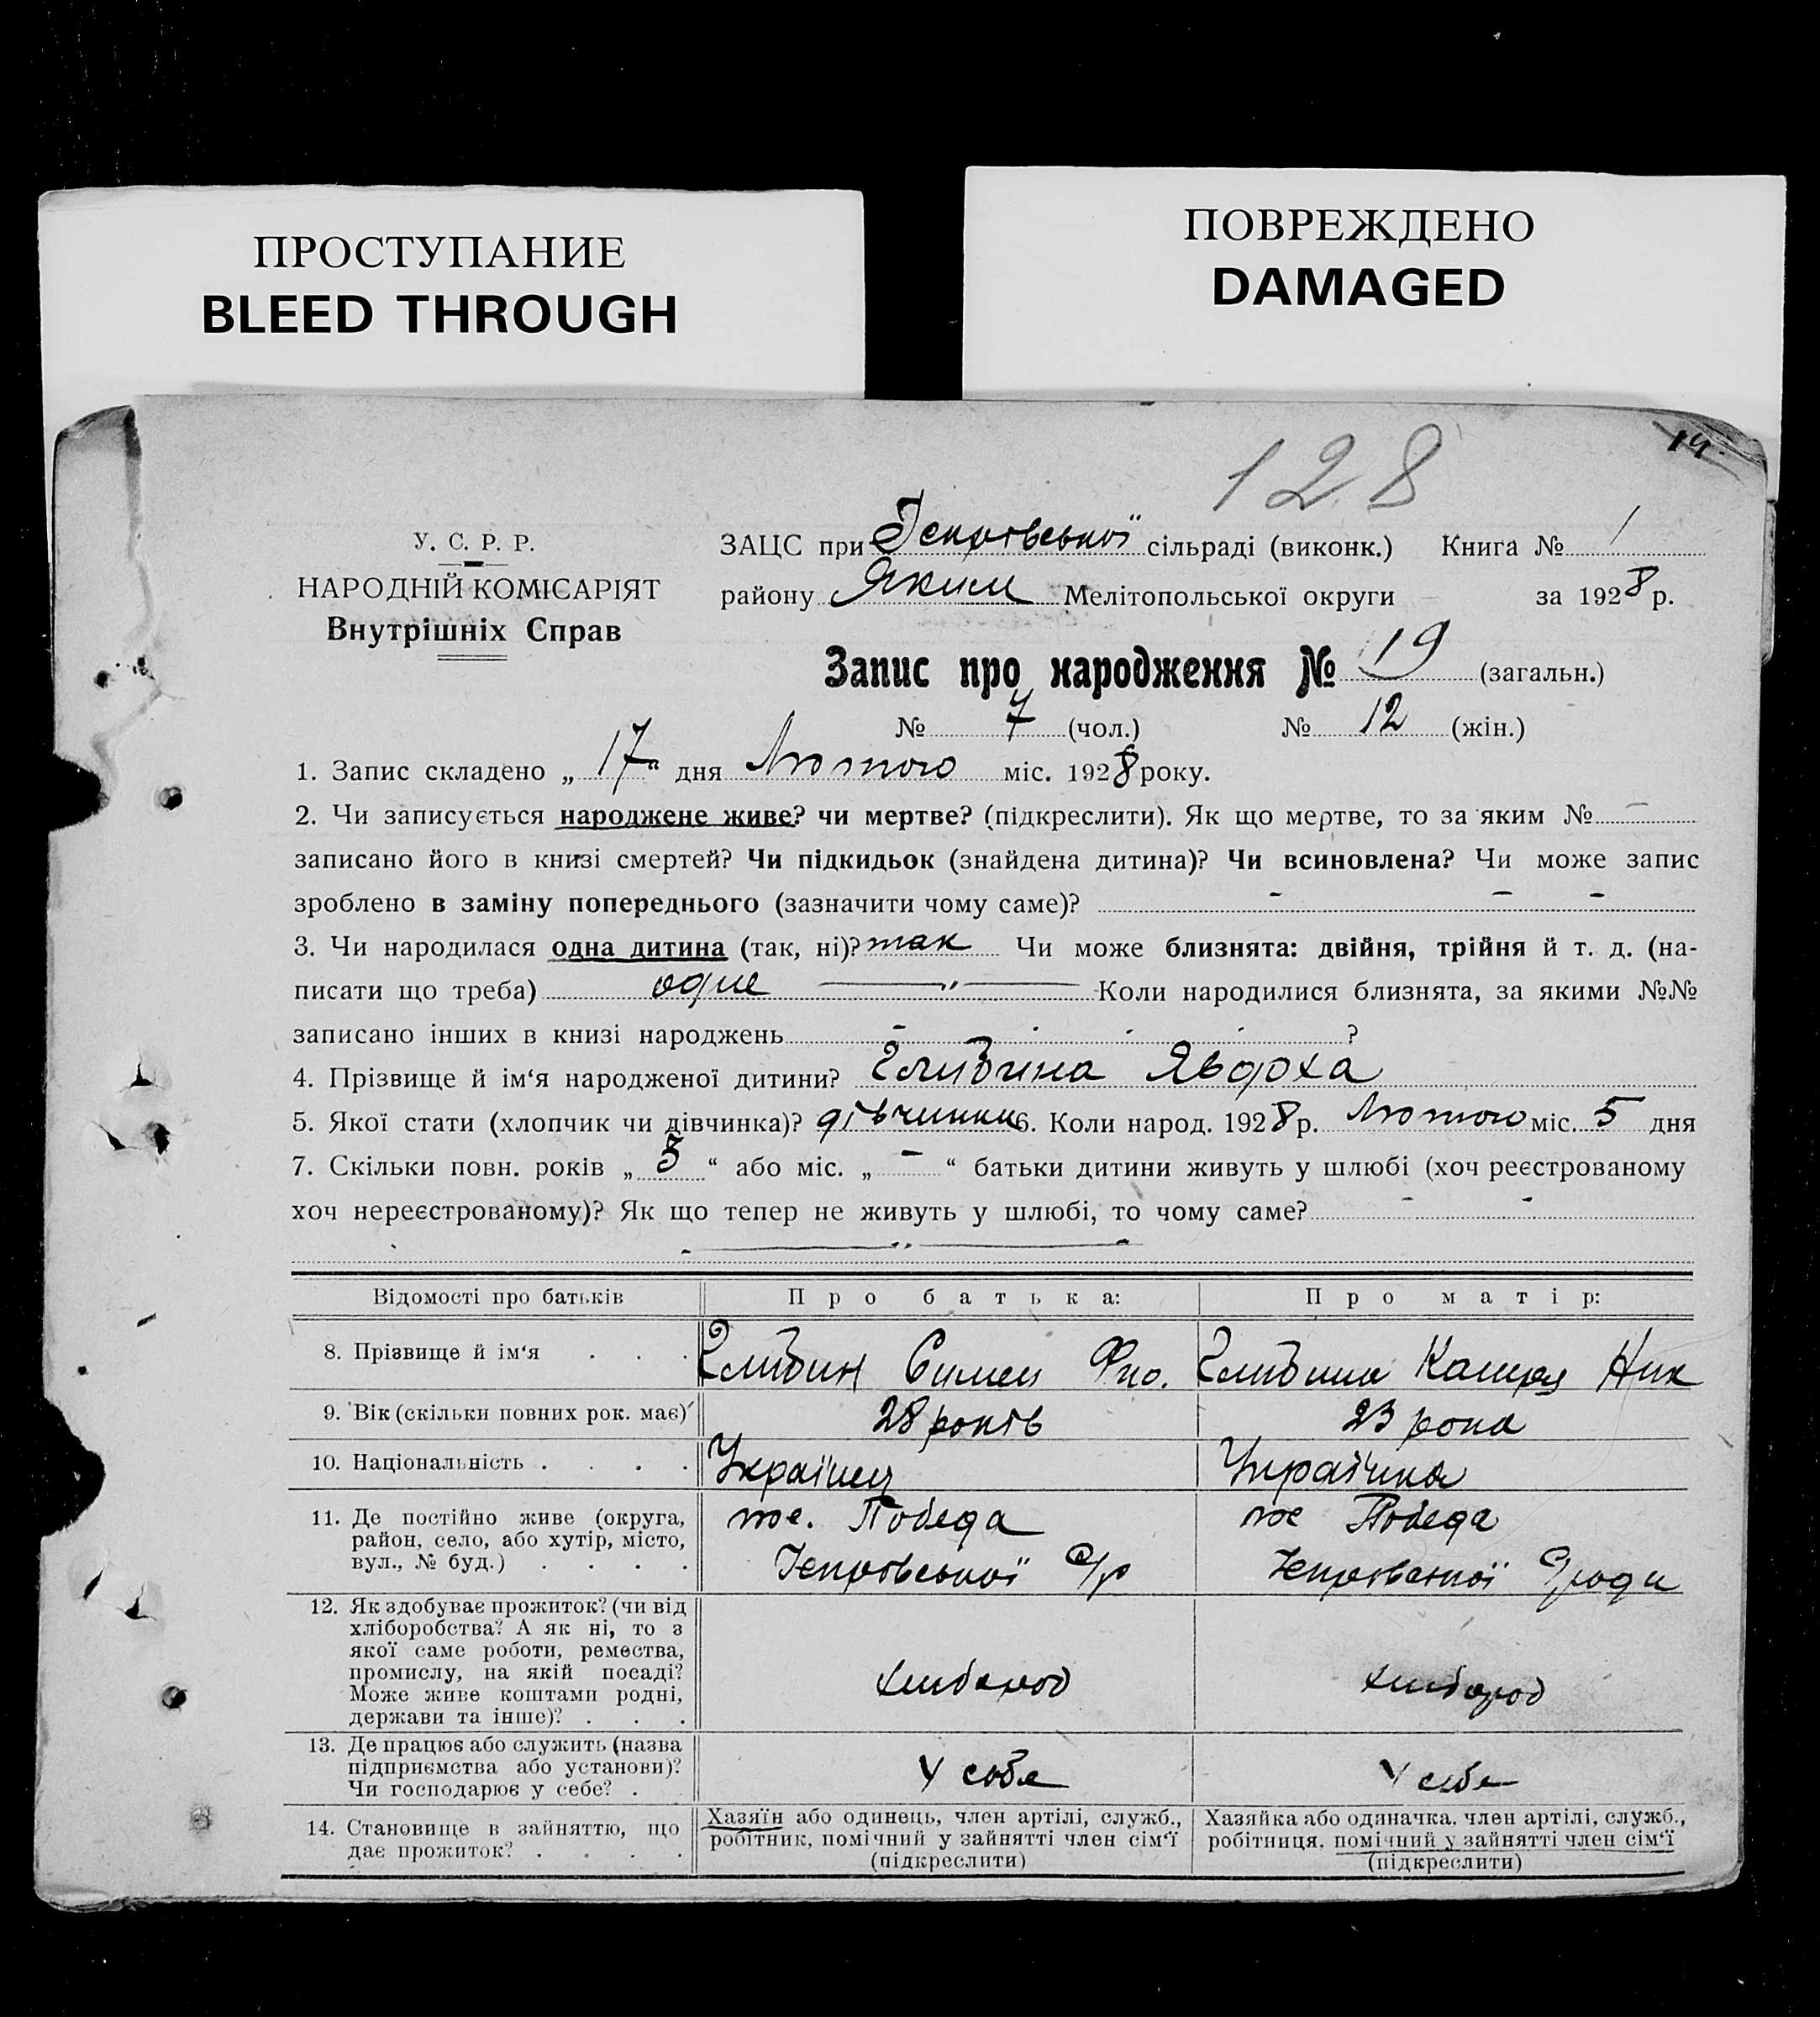 ПРОСТУПАНИЕ
BLEED THROUGH
ПОВРЕЖДЕНО
DAMAGED
128
14.
У. С. Р. Р.
НАРОДНІЙ КОМІСАРІЯТ
Внутрішніх Справ
ЗАЦС при сільраді (виконк.) Книга № 1
району Яким Мелітопольської округи за 1928 р.
Запис про народження № 19 (загальн.)
№ 7 (чол.) № 12 (жін.)
1. Запис складено „ 17 “ дня Лютого міс. 1928 року.
2. Чи записується народжене живе? чи мертве? (підкреслити). Як що мертве, то за яким № –
записано його в книзі смертей? Чи підкидьок (знайдена дитина)? Чи всиновлена? Чи може запис
зроблено в заміну попереднього (зазначити чому саме)? – – –
3. Чи народилася одна дитина (так, ні)? так Чи може близнята: двійня, трійня й т. д. (на-
писати що треба) одне — „ — Коли народилися близнята, за якими №№
записано інших в книзі народжень – ?
4. Прізвище й ім‘я народженої дитини? Явдоха
5. Якої стати (хлопчик чи дівчинка)? дівчинка 6. Коли народ. 1928 р. Лютого міс. 5 дня
7. Скільки повн. років „ 5 “ або міс. „ – “ батьки дитини живуть у шлюбі (хоч реєстрованому
хоч нереєстрованому)? Як що тепер не живуть у шлюбі, то чому саме? – –
Відомості про батьків
Про батька:
Про матір:
8. Прізвище й ім‘я . . .
Симен
9. Вік (скільки повних рок. має)
28 років
23 рока
10. Національність . . . .
Українец
Українка
11. Де постійно живе (округа,
район, село, або хутір, місто,
вул., № буд.) . . . .
Победа
с/р
Победа
с/ради
12. Як здобуває прожиток? (чи від
хліборобства? А як ні, то з
якої саме роботи, ремества,
промислу, на якій посаді?
Може живе коштами родні,
держави та інше)? . . .
хлибороб
хлибороб
13. Де працює або служить (назва
підприємства або установи)?
Чи господарює у себе? .
У собе
У себе
14. Становище в зайняттю, що
дає прожиток? . . . .
Хазяїн або одинець, член артілі, служб.,
робітник, помічний у зайнятті член сім‘ї
(підкреслити)
Хазяйка або одиначка, член артілі, служб.,
робітниця, помічний у зайнятті член сім‘ї
(підкреслити)